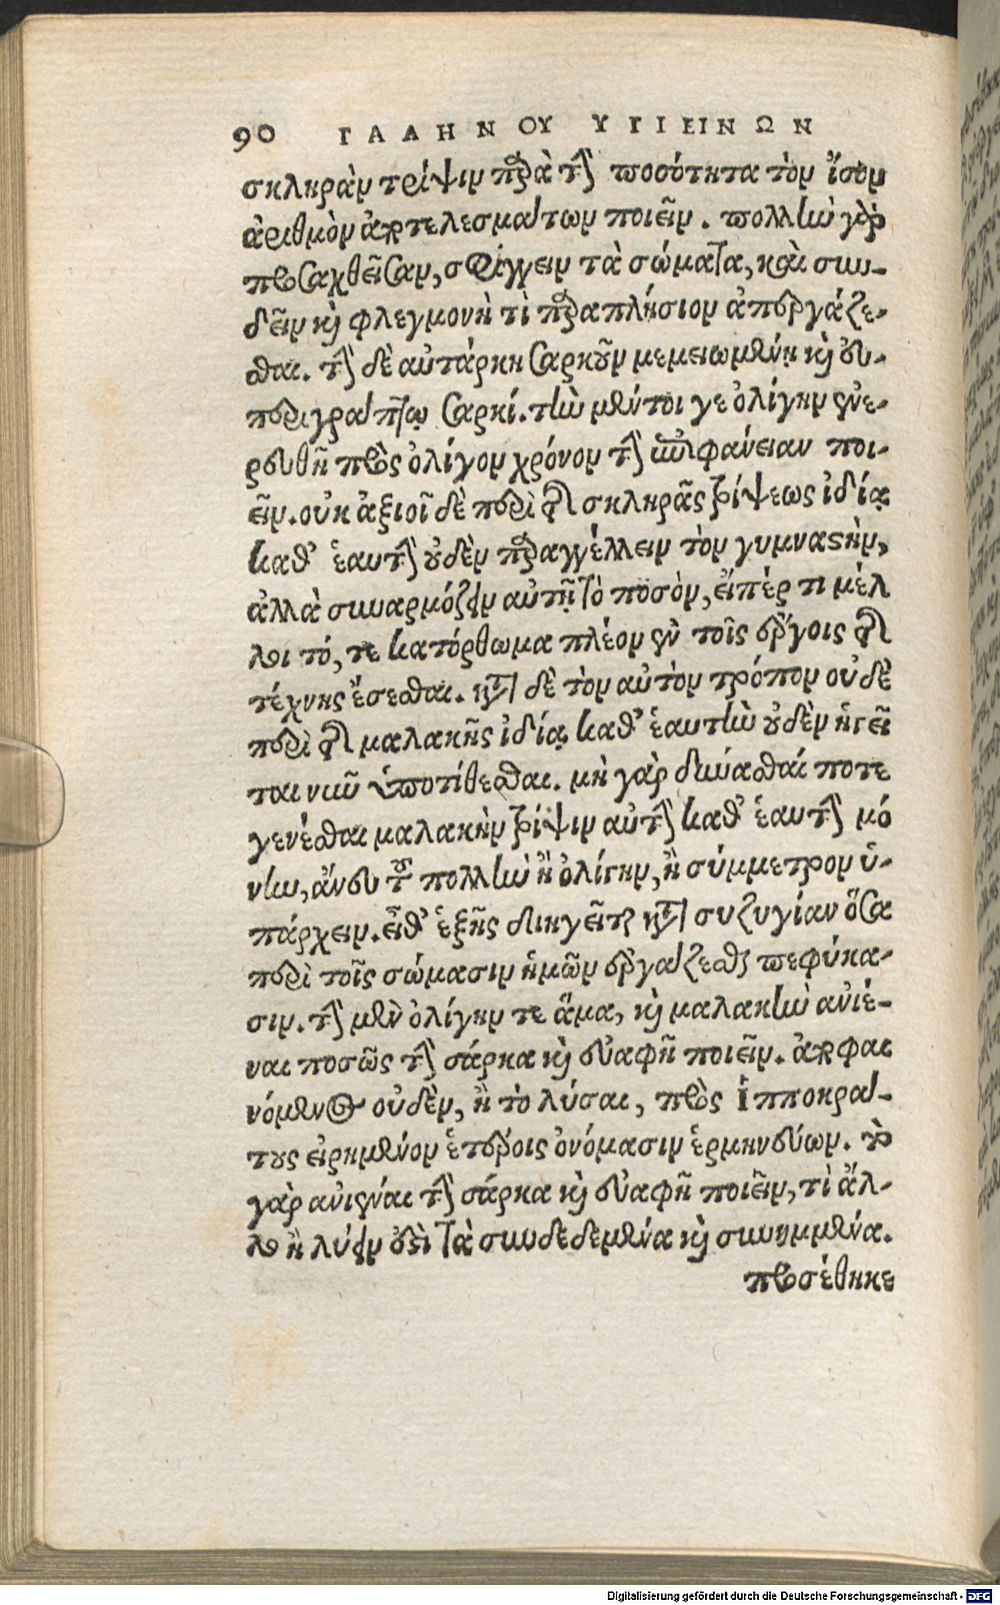 90 ΓΑΛΗΝΟΥ ΥΓΙΕΙΝΩΝ
σκληρὰν τρίψιν παρὰ τὴν ποσότητα τὸν ἴσον
ἀριθμὸν ἀποτελεσμάτων ποιεῖν. πολλὴν γὰρ
προσαχθεῖσαν, σφίγγειν τὰ σώματα, καὶ συν-
δεῖν καὶ φλεγμονῇ τὶ παραπλήσιον ἀπεργάζε-
σθαι. τὴν δὲ αὐτάρκη σαρκοῦν μεμειωμένῃ καὶ δυ-
περιγράπτῳ σαρκί. τὴν μέντοι γε ὀλίγην ἐνε-
ρευθῆ πρὸς ὀλίγον χρόνον τὴν ἐπιφάνειαν ποι-
εῖν. οὐκ ἀξιοῖ δὲ περὶ τῆς σκληρᾶς τρίψεως ἰδίᾳ
καθ' ἑαυτὴν οὐδὲν παραγγέλλειν τὸν γυμναστὴν,
ἀλλὰ συναρμόζειν αὐτῇ τὸ ποσὸν, εἴπέρ τι μέλ
λοι τό, τε κατόρθωμα πλέον ἐν τοῖς ἔργοις τῆς
τέχνης ἔσεσθαι. κατὰ δὲ τὸν αὐτὸν τρόπον οὐδὲ
περὶ τῆς μαλακῆς ἰδίᾳ καθ' ἑαυτὴν οὐδὲν ἡγεῖ
ται νῦν ὑποτίθεσθαι. μὴ γὰρ δύνασθαί ποτε
γενέσθαι μαλακὴν τρίψιν αὐτὴν καθ' ἑαυτὴν μό
νην, ἄνευ τοῦ πολλὴν ἢ ὀλίγην, ἢ σύμμετρον ὑ-
πάρχειν. εἶθ' ἑξῆς διηγεῖται κατὰ συζυγίαν ὅσα
περὶ τοῖς σώμασιν ἡμῶν ἐργάζεσθαι πεφύκα-
σιν. τὴν μὲν ὀλίγην τε ἅμα, καὶ μαλακὴν ἀνιέ-
ναι ποσῶς τὴν σάρκα καὶ εὐαφῆ ποιεῖν. ἀποφαι
νόμενος οὐδὲν, ἢ τὸ λύσαι, πρὸς Ἱπποκρά-
τους εἰρημένον ἑτέροις ὀνόμασιν ἑρμηνεύων. τὸ
γὰρ ἀνιέναι τὴν σάρκα καὶ εὐαφῆ ποιεῖν, τὶ ἄλ-
λο ἢ λύειν ἐστὶ τὰ συνδεδεμένα καὶ συνημμένα.
προσέθηκε
Digitalisierung gefördert durch die Deutsche Forschungsgemeinschaft - DFG